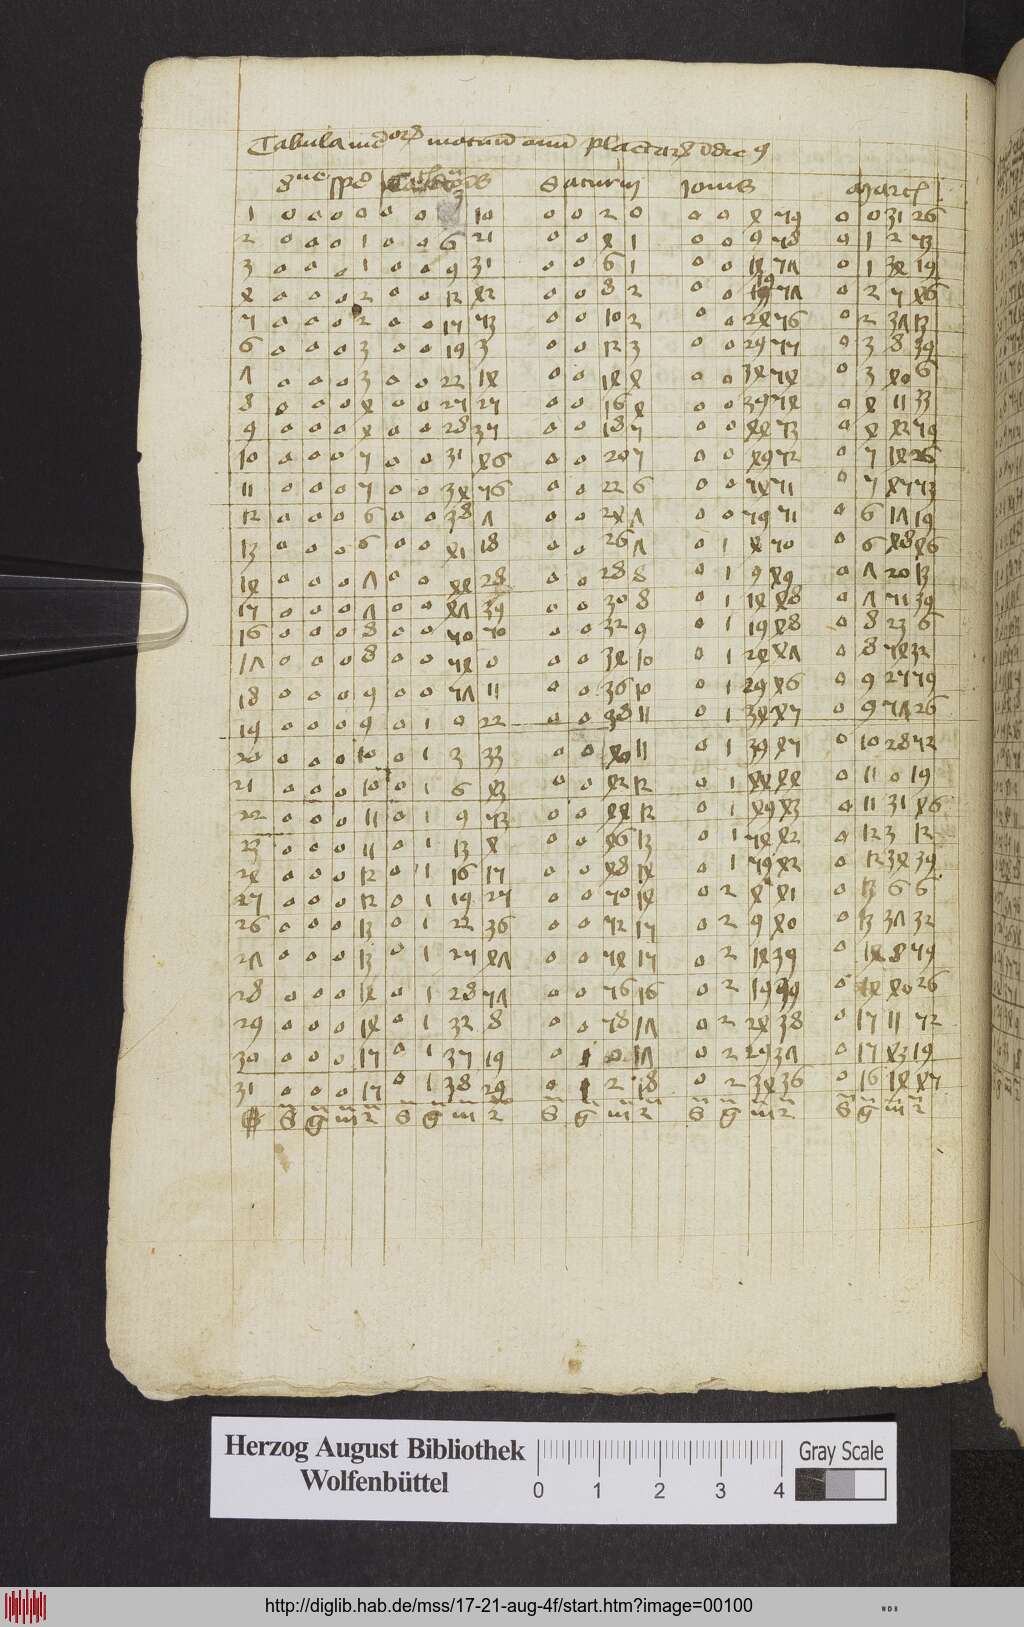 Tabula med orum motuum omnium planetarum
Saturni Iovis Martis
1 0 0 0 0 0 0 10 0 0 2 0 0 0 4 59 0 0 31 26
2 0 0 0 1 0 0 6 21 0 0 4 1 0 0 9 58 0 1 2 53
3 0 0 0 1 0 0 9 31 0 0 6 1 0 0 14 57 0 1 34 19
4 0 0 0 2 0 0 12 42 0 0 8 2 0 0 19 57 0 2 5 46
5 0 0 0 2 0 0 15 53 0 0 10 2 0 0 24 56 0 2 37 13
6 0 0 0 3 0 0 19 3 0 0 12 3 0 0 29 55 0 3 8 39
7 0 0 0 3 0 0 22 14 0 0 14 4 0 0 34 54 0 3 40 6
8 0 0 0 4 0 0 25 25 0 0 16 4 0 0 39 54 0 4 11 33
9 0 0 0 4 0 0 28 35 0 0 18 5 0 0 44 53 0 4 42 59
10 0 0 0 5 0 0 31 46 0 0 20 5 0 0 49 52 0 5 14 26
11 0 0 0 5 0 0 34 56 0 0 22 6 0 0 54 51 0 5 45 53
12 0 0 0 6 0 0 38 7 0 0 24 7 0 0 59 51 0 6 17 19
13 0 0 0 6 0 0 41 18 0 0 26 7 0 1 4 50 0 6 48 46
14 0 0 0 7 0 0 44 28 0 0 28 8 0 1 9 49 0 7 20 13
15 0 0 0 7 0 0 47 39 0 0 30 8 0 1 14 48 0 7 51 39
16 0 0 0 8 0 0 50 50 0 0 32 9 0 1 19 48 0 8 23 6
17 0 0 0 8 0 0 54 0 0 0 34 10 0 1 24 47 0 8 54 32
18 0 0 0 9 0 0 57 11 0 0 36 10 0 1 29 46 0 9 25 59
19 0 0 0 9 0 1 0 22 0 0 38 11 0 1 34 45 0 9 57 26
20 0 0 0 10 0 1 3 33 0 0 40 11 0 1 39 45 0 10 28 52
21 0 0 0 10 0 1 6 43 0 0 42 12 0 1 44 44 0 11 0 19
22 0 0 0 11 0 1 9 53 0 0 44 12 0 1 49 43 0 11 31 46
23 0 0 0 11 0 1 13 4 0 0 46 13 0 1 54 42 0 12 3 12
24 0 0 0 12 0 1 16 15 0 0 48 14 0 1 59 42 0 12 34 39
25 0 0 0 12 0 1 19 25 0 0 50 14 0 2 4 41 0 13 6 6
26 0 0 0 13 0 1 22 36 0 0 52 15 0 2 9 40 0 13 37 32
27 0 0 0 13 0 1 25 47 0 0 54 15 0 2 14 39 0 14 8 59
28 0 0 0 14 0 1 28 57 0 0 56 16 0 2 19 39 0 14 40 26
29 0 0 0 14 0 1 32 8 0 0 58 17 0 2 24 38 0 15 11 52
30 0 0 0 15 0 1 35 19 0 1 0 17 0 2 29 37 0 15 43 19
31 0 0 0 15 0 1 38 29 0 1 2 18 0 2 34 36 0 16 14 45
S g m 2 S g m 2 S g m 2 S g m 2 S g m 2
Herzog August Bibliothek
Wolfenbüttel
0 1 2 3 4
Gray Scale
http://diglib.hab.de/mss/17-21-aug-4f/start.htm?image=00100
WDB